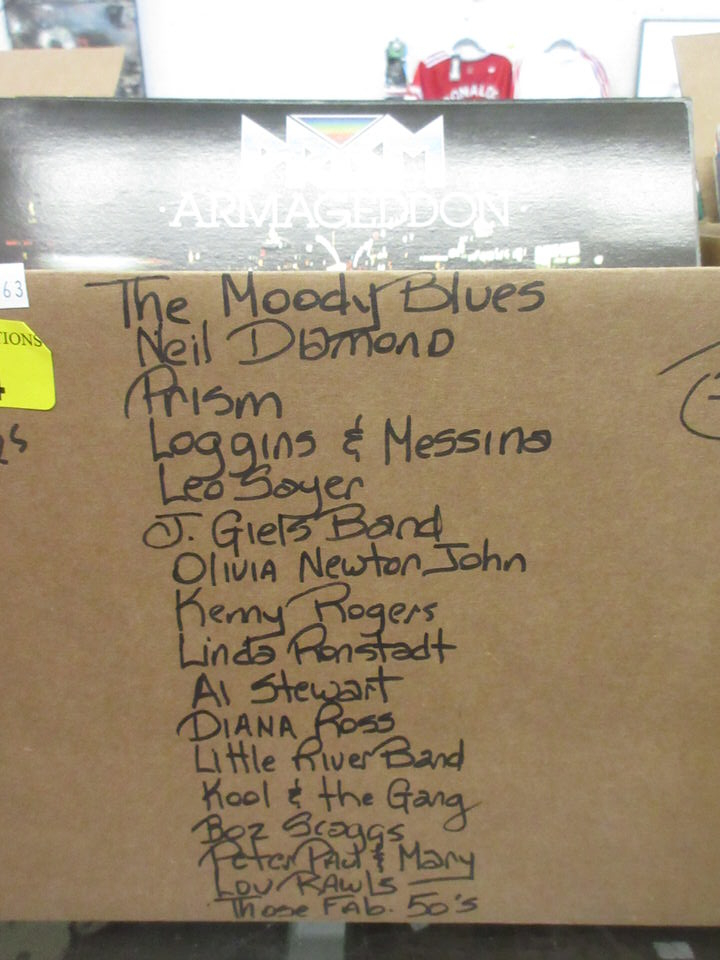 RONALDO
PRISM
ARMAGEDDON
63
TIONS
The Moody Blues
Neil Diamond
Prism
Loggins & Messina
Leo Sayer
J. Giels Band
Olivia Newton John
Kenny Rogers
Linda Ronstadt
Al Stewart
DIANA Ross
Little River Band
Kool & the Gang
Boz Scaggs
Peter Paul & Mary
Lou RAWls
Those FAB. 50's